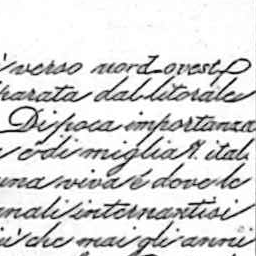 i verso nord-ovest
parata dal litorale
Di poca importanza
e è di miglia 7. ital.
una viva é dove le
anali internantisi
iú che mai gli anni